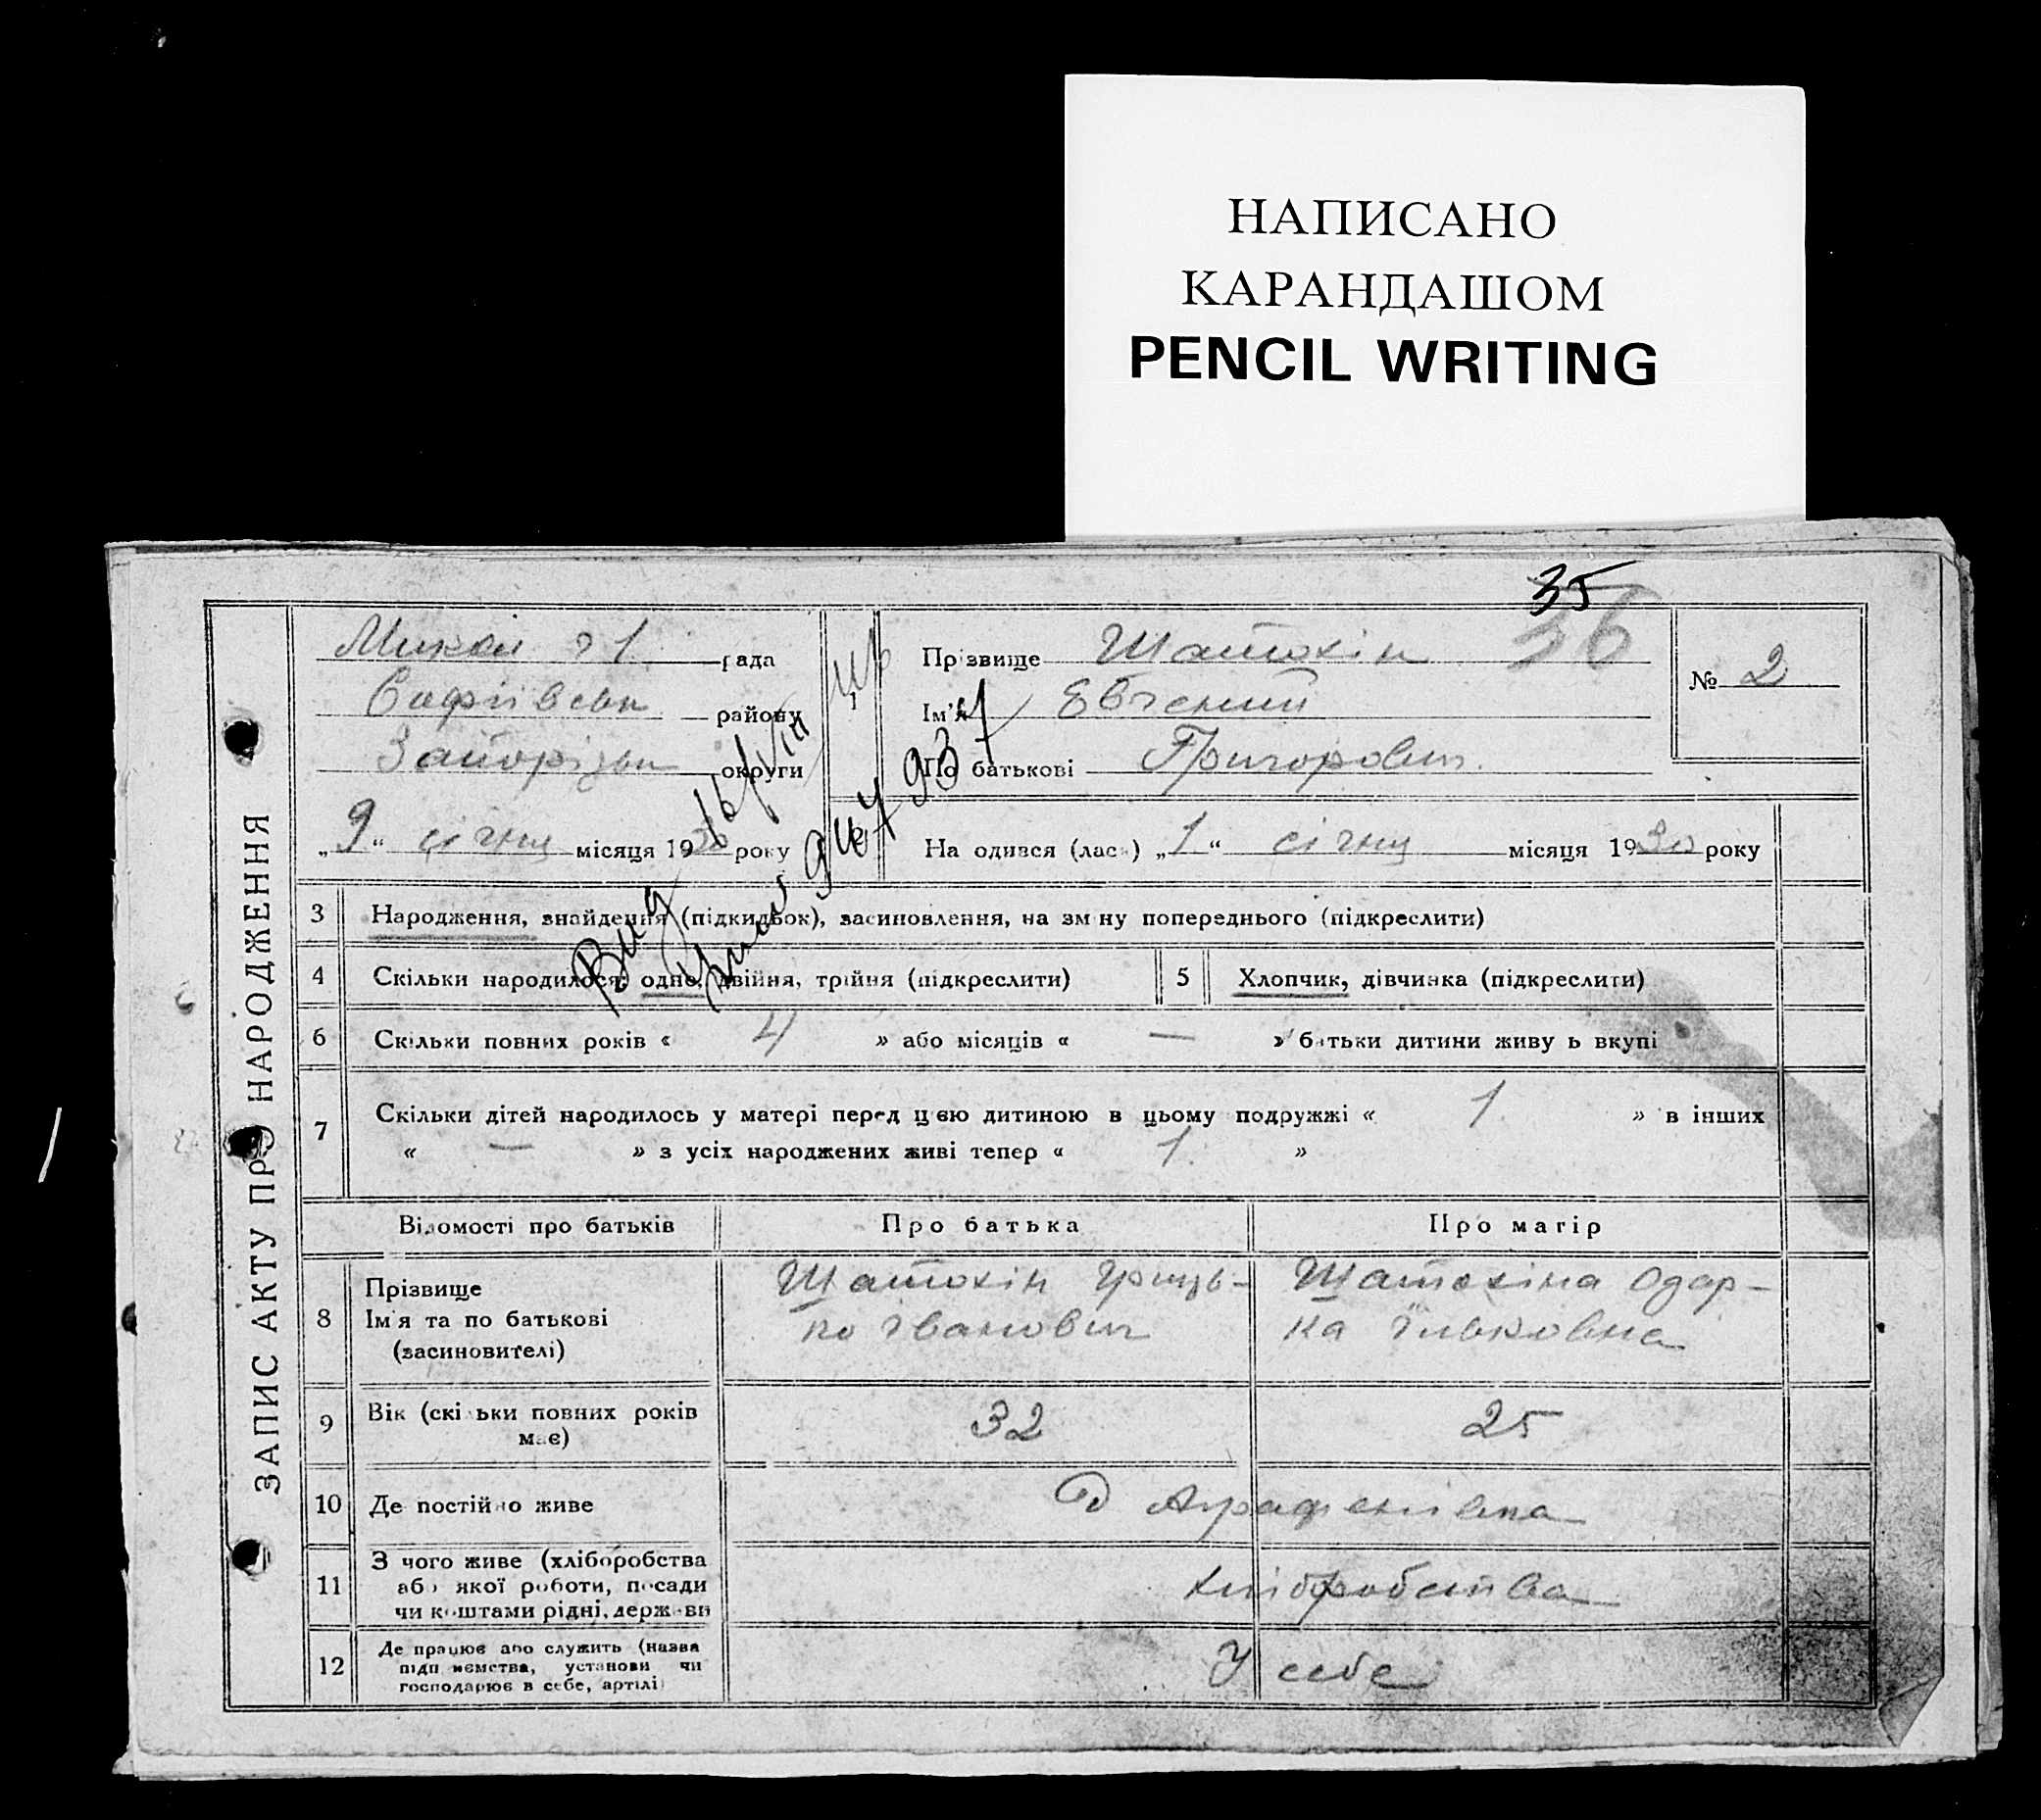 НАПИСАНО
КАРАНДАШОМ
PENCIL WRITING
35
36
ЗАПИС АКТУ ПРО НАРОДЖЕННЯ
Микол №1 рада
Софіївськ району
Запорізьк округи
„9“ січня місяця 1930 року
Прізвище Шатохін
Ім'я Євгений
По батькові Григорович
№ 2
На одився (лась) „1“ січня місяця 1930 року
3 Народження, знайдення (підкидьок), засиновлення, на зміну попереднього (підкреслити)
4 Скільки народилося: одне, двійня, трійня (підкреслити)
5 Хлопчик, дівчинка (підкреслити)
6 Скільки повних років « 4 » або місяців « — » батьки дитини живу ь вкупі
7 Скільки дітей народилось у матері перед цією дитиною в цьому подружжі « 1 » в інших
« — » з усіх народжених живі тепер « 1 »
Відомості про батьків Про батька Про матір
8 Прізвище
Ім'я та по батькові
(засиновителі)
Шатохін Гриць-
ко Іванович
Шатохіна Одар-
ка
9 Вік (скільки повних років
має)
32 25
10 Де постійно живе
Аграфенівка
11 З чого живе (хліборобства
або якої роботи, посади
чи коштами рідні, держави
хліборобства
12 Де працює або служить (назва
підприємства, установи чи
господарює в себе, артілі)
У себе